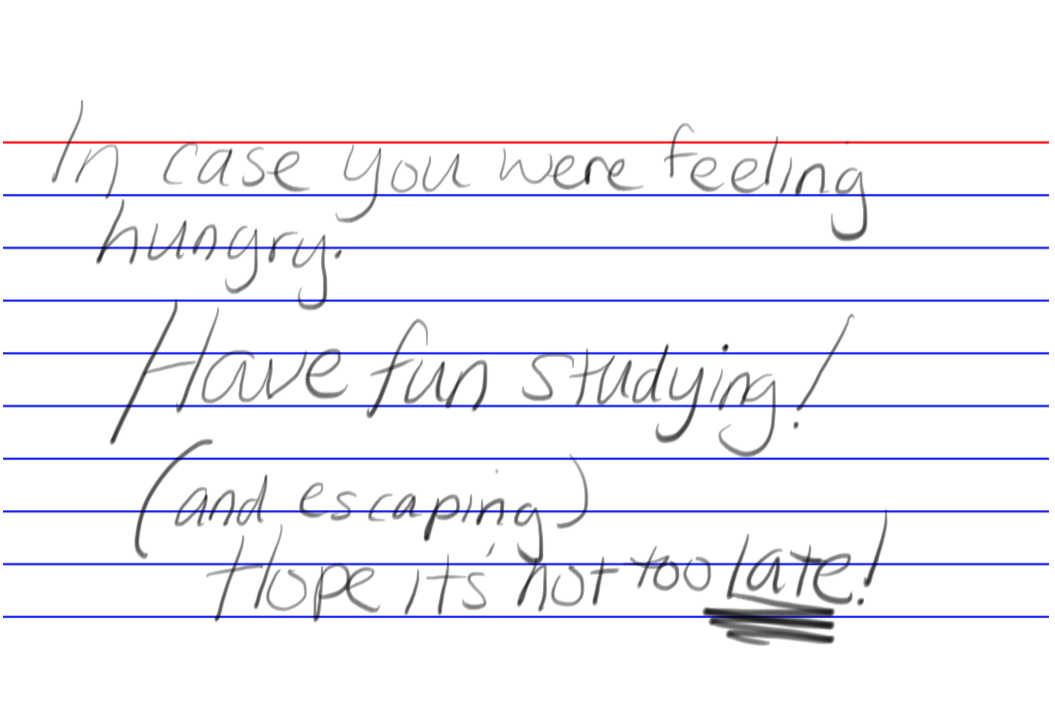 In case you were feeling
hungry.
Have fun studying!
(and escaping)
Hope it's not too late!